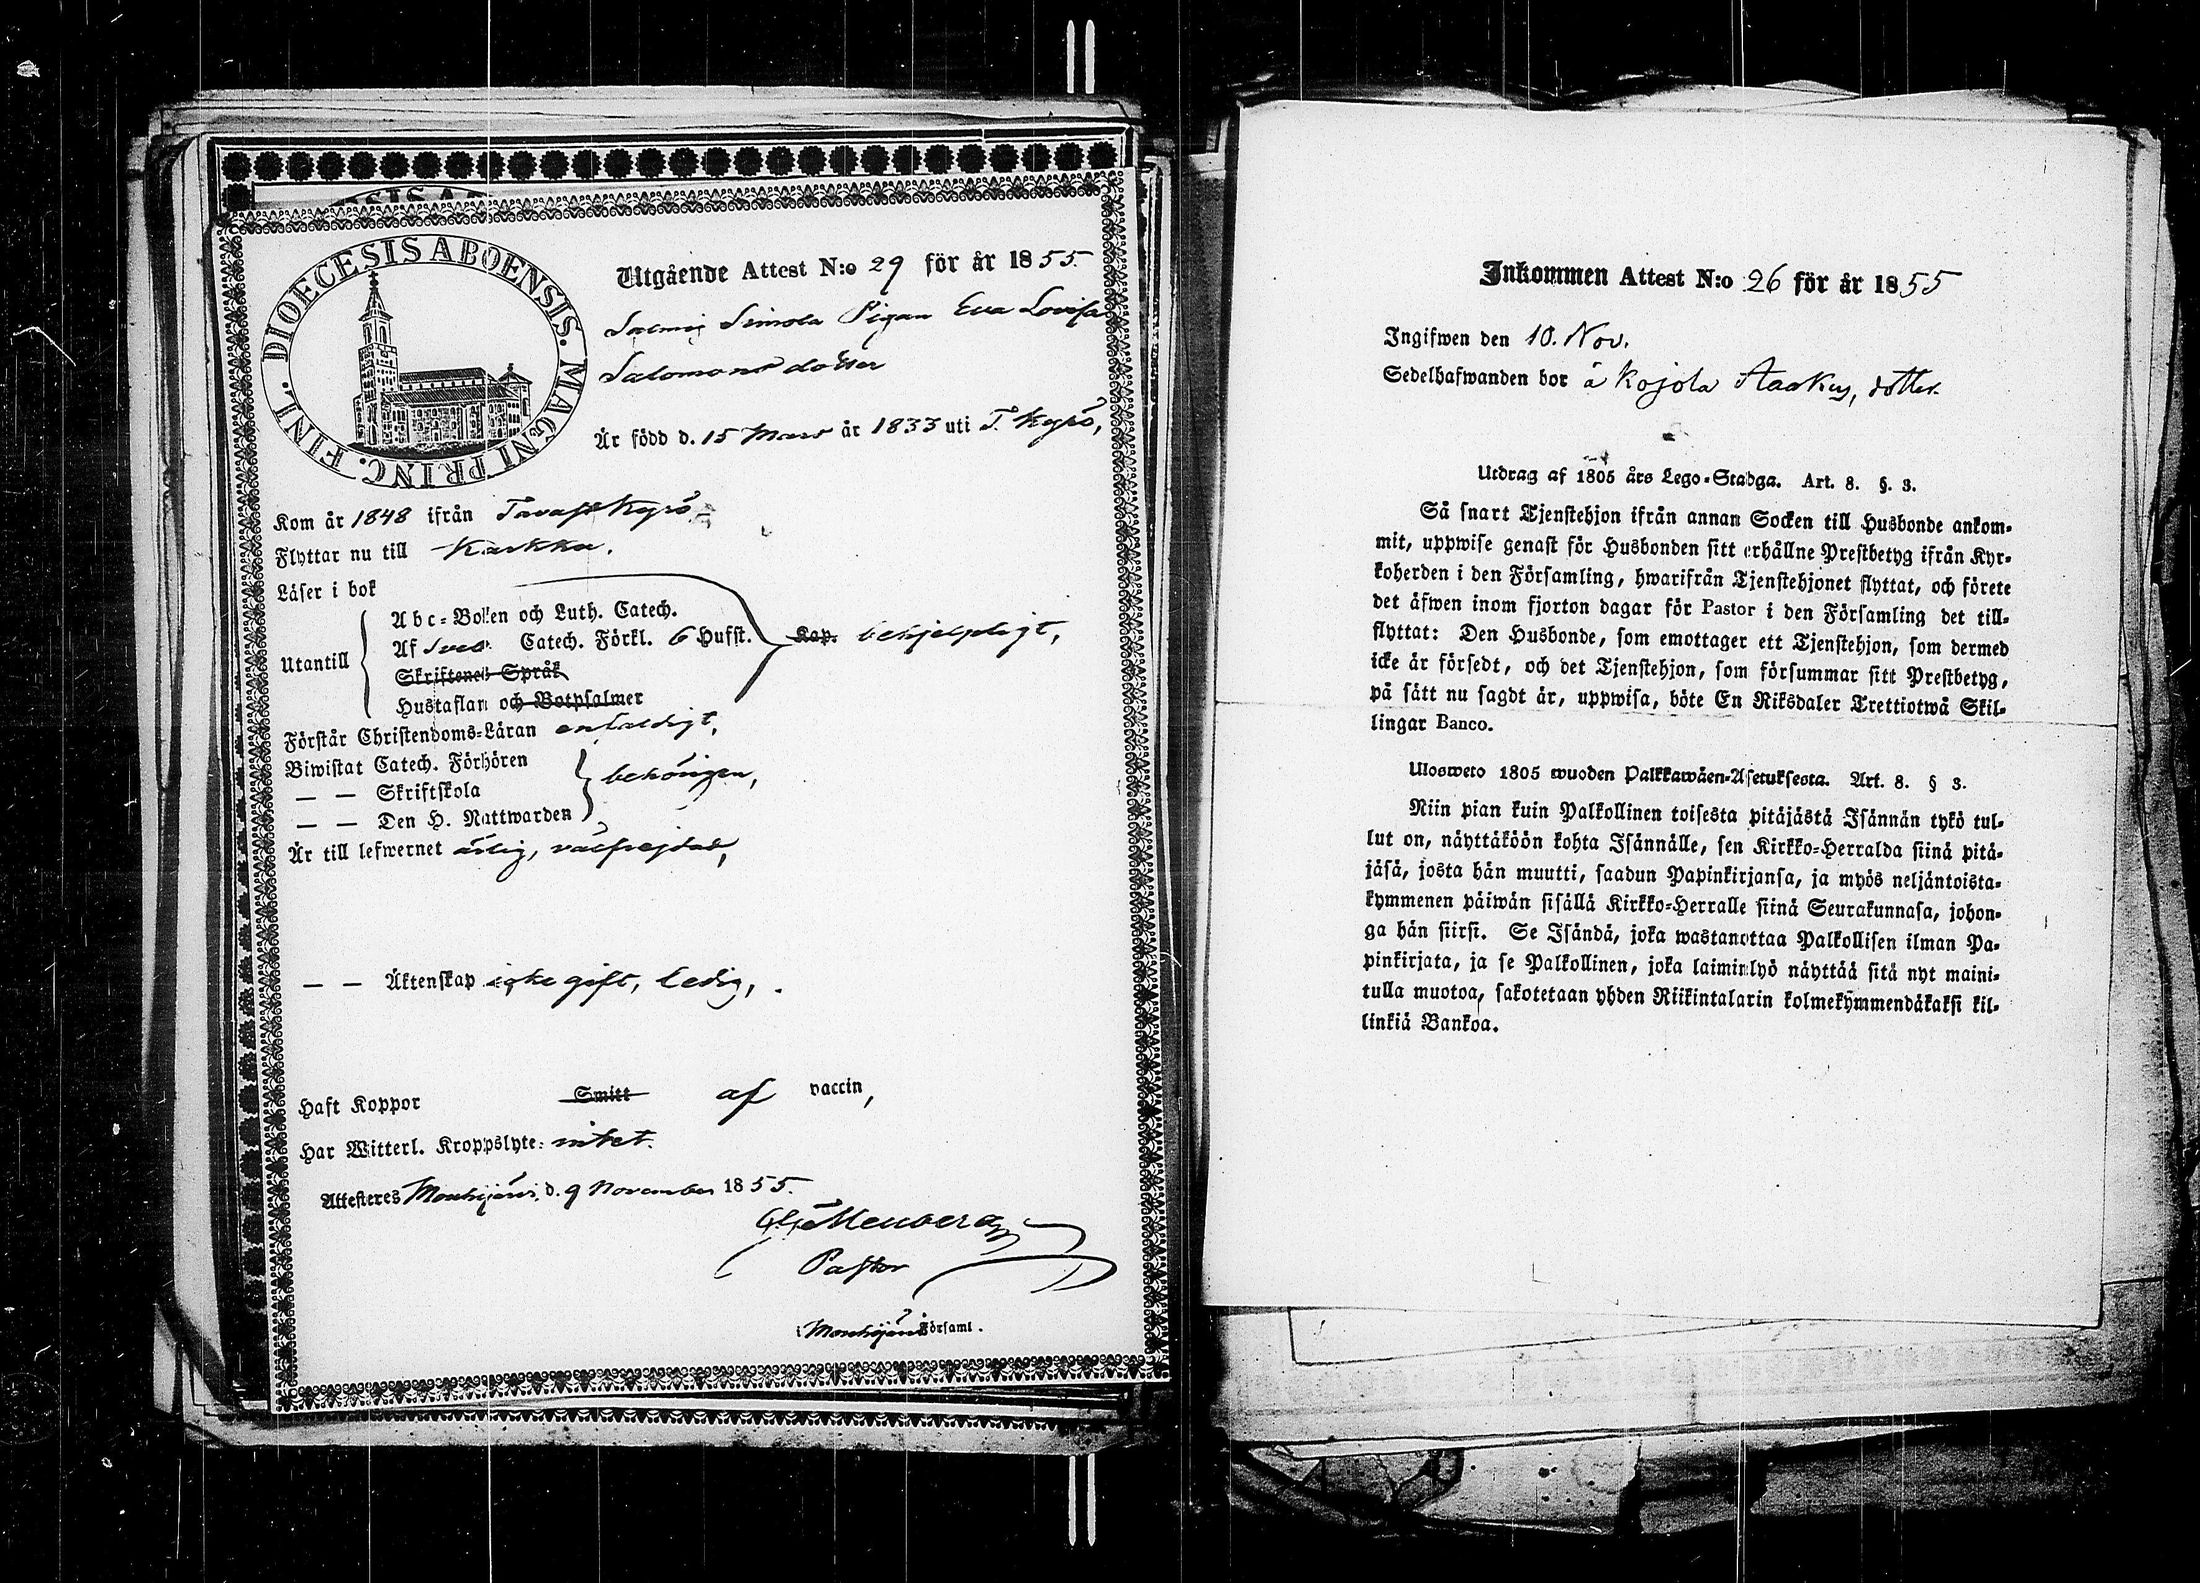 DIOECESIS ABOENSIS. MAGNI PRINC. FINL.
Utgående Attest N:o 29 för år 1855.
Salmis Simola Pigan Eva Lovisa
Salomonsdotter
Är född d. 15 Mars år 1833 uti T. Kyrö,
Kom år 1848 ifrån Tavastkyrö
Flyttar nu till Karkku.
Läser i bok
Abc-Boken och Luth. Catech.
Utantill Af Sveb. Catech. Förkl. 6 Hufst. Kap. behjelpligt,
Skriftenes Språk
Hustaflan och Botpsalmer
Förstår Christendoms-Läran enfaldigt,
Biwistat Catech. Förhören
— — Skriftskola behörigen,
— — Den H. Nattwarden
Är till lefwernet ärlig, välfrejdad,
— — Äktenskap icke gift, ledig,
Haft Koppor Smitt af vaccin,
Har Witterl. Kroppslyte: intet.
Attesteras Mouhijärvi d. 9 November 1855.
Pastor
i Mouhijärvi Församl.
Inkommen Attest N:o 26 för år 1855
Ingifwen den 10. Nov.
Sedelhafwanden bor å Kojola Aaakus, dotter.
Utdrag af 1805 års Lego-Stadga. Art. 8. §. 3.
Så snart Tjenstehjon ifrån annan Socken till Husbonde ankom-
mit, uppwise genast för Husbonden sitt erhållne Prestbetyg ifrån Kyr-
koherden i den Församling, hwarifrån Tjenstehjonet flyttat, och förete
det äfwen inom fjorton dagar för Pastor i den Församling det till-
flyttat: Den Husbonde, som emottager ett Tjenstehjon, som dermed
icke är försedt, och det Tjenstehjon, som försummar sitt Prestbetyg,
på sätt nu sagdt är, uppwisa, böte En Riksdaler Trettiotwå Skil-
lingar Banco.
Ulosweto 1805 wuoden Palkkawäen-Asetuksesta. Art. 8. § 3.
Niin pian kuin Palkollinen toisesta pitäjästä Isännän tykö tul-
lut on, näyttäköön kohta Isännälle, sen Kirkko-Herralda siinä pitä-
jäsä, josta hän muutti, saadun Papinkirjansa, ja myös neljäntoista-
kymmenen päiwän sisällä Kirkko-Herralle siinä Seurakunnasa, johon-
ga hän siirsi. Se Isändä, joka wastanottaa Palkollisen ilman Pa-
pinkirjata, ja se Palkollinen, joka laiminlyö näyttää sitä nyt maini-
tulla muotoa, sakotetaan yhden Riikintalarin kolmekymmendäkaksi kil-
linkiä Bankoa.